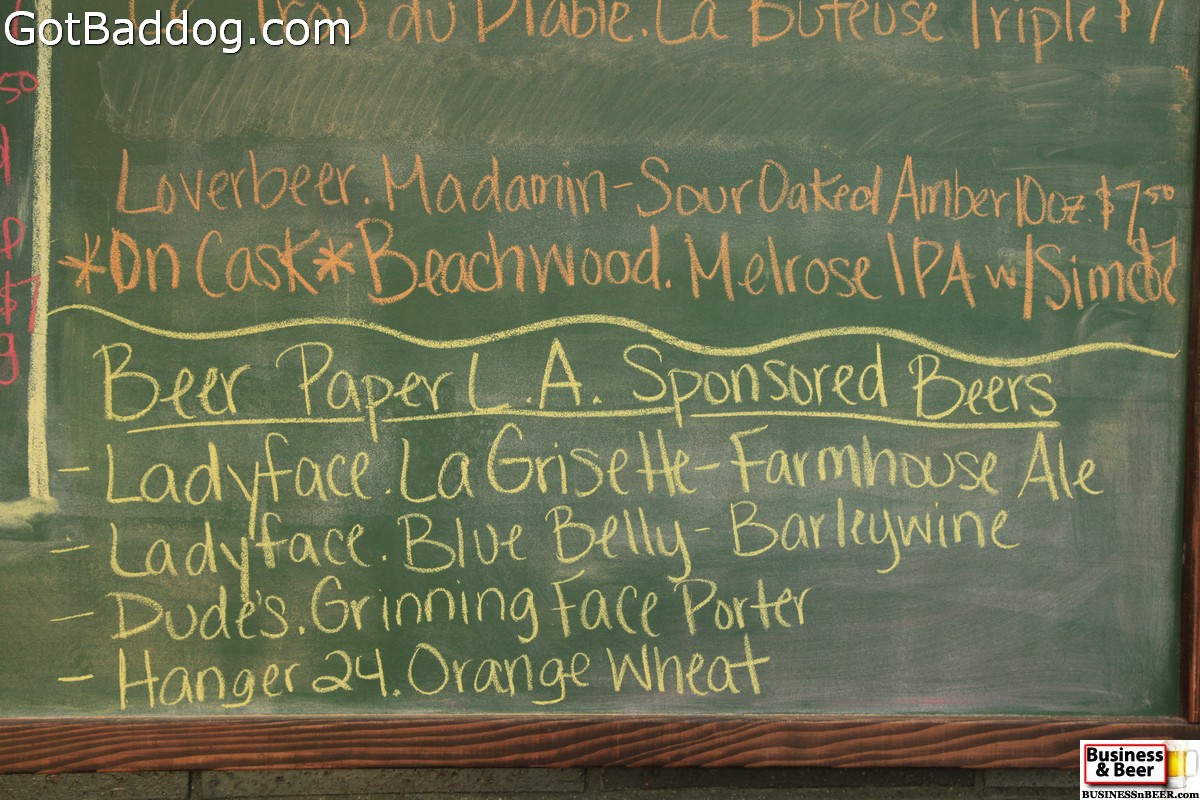 GotBaddog.com
Trou du Diable. La Buteuse Triple $7
50
Loverbeer. Madamin - Sour Oaked Amber 10oz. $7.50
*On Cask* Beachwood. Melrose IPA w/ Simcoe $7
$7
Beer Paper L.A. Sponsored Beers
- Ladyface. La Grisette - Farmhouse Ale
- Ladyface. Blue Belly - Barleywine
- Dude's. Grinning Face Porter
- Hanger 24. Orange Wheat
Business
& Beer
BUSINESSnBEER.com